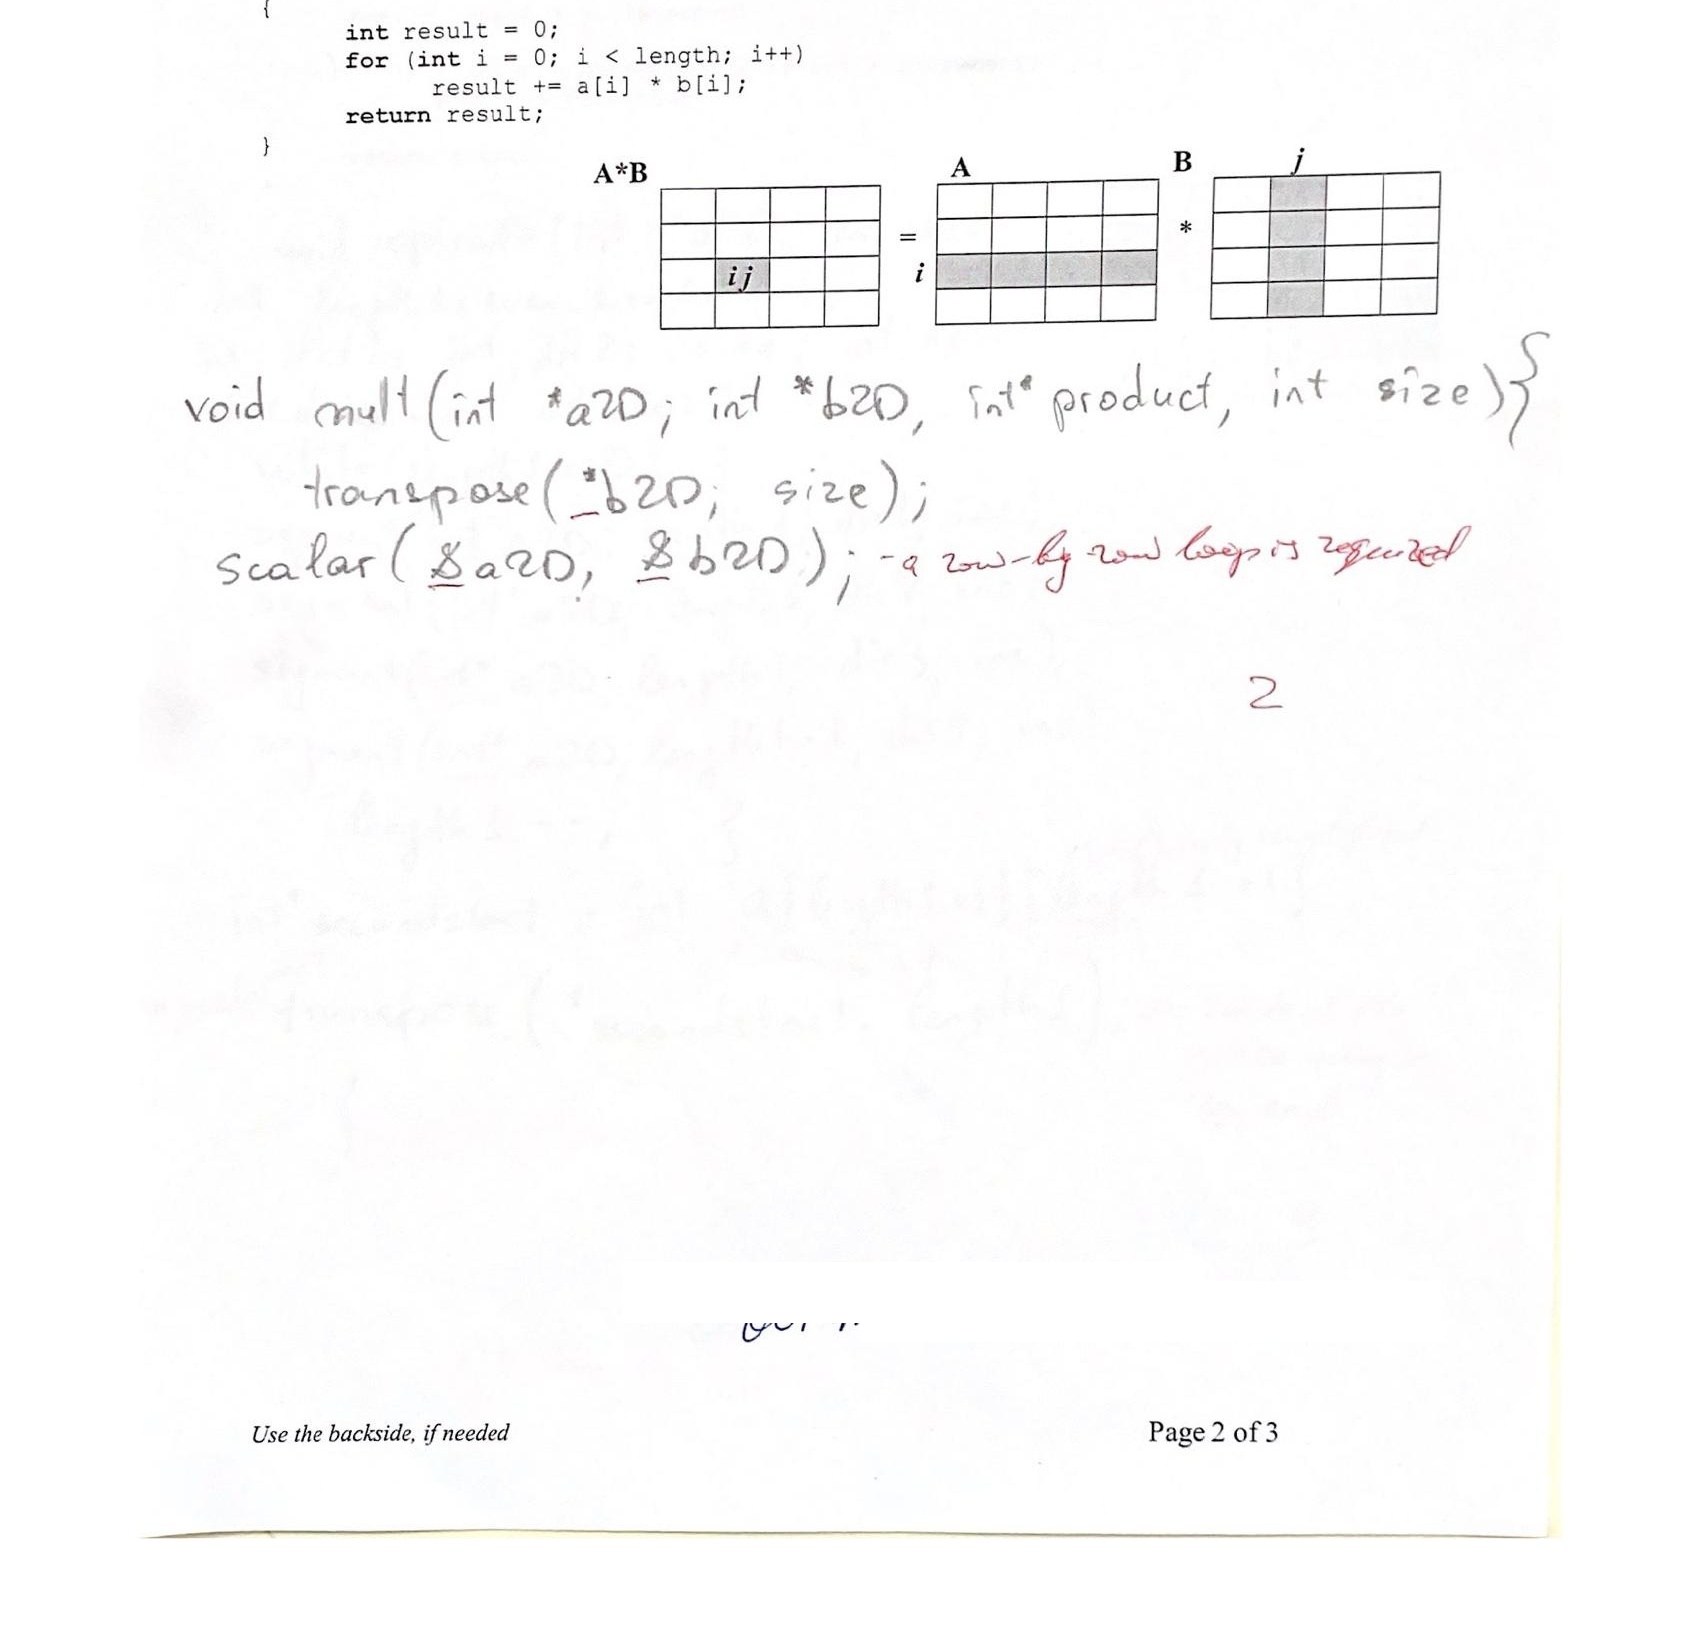 {
int result = 0;
for (int i = 0; i < length; i++)
result += a[i] * b[i];
return result;
}
A*B = A * B
j
i j
i
void mult(int *a2D; int *b2D, int* product, int size){
transpose(*b2D; size);
scalar(&a2D, &b2D); - a row-by row loop is required
2
Use the backside, if needed Page 2 of 3